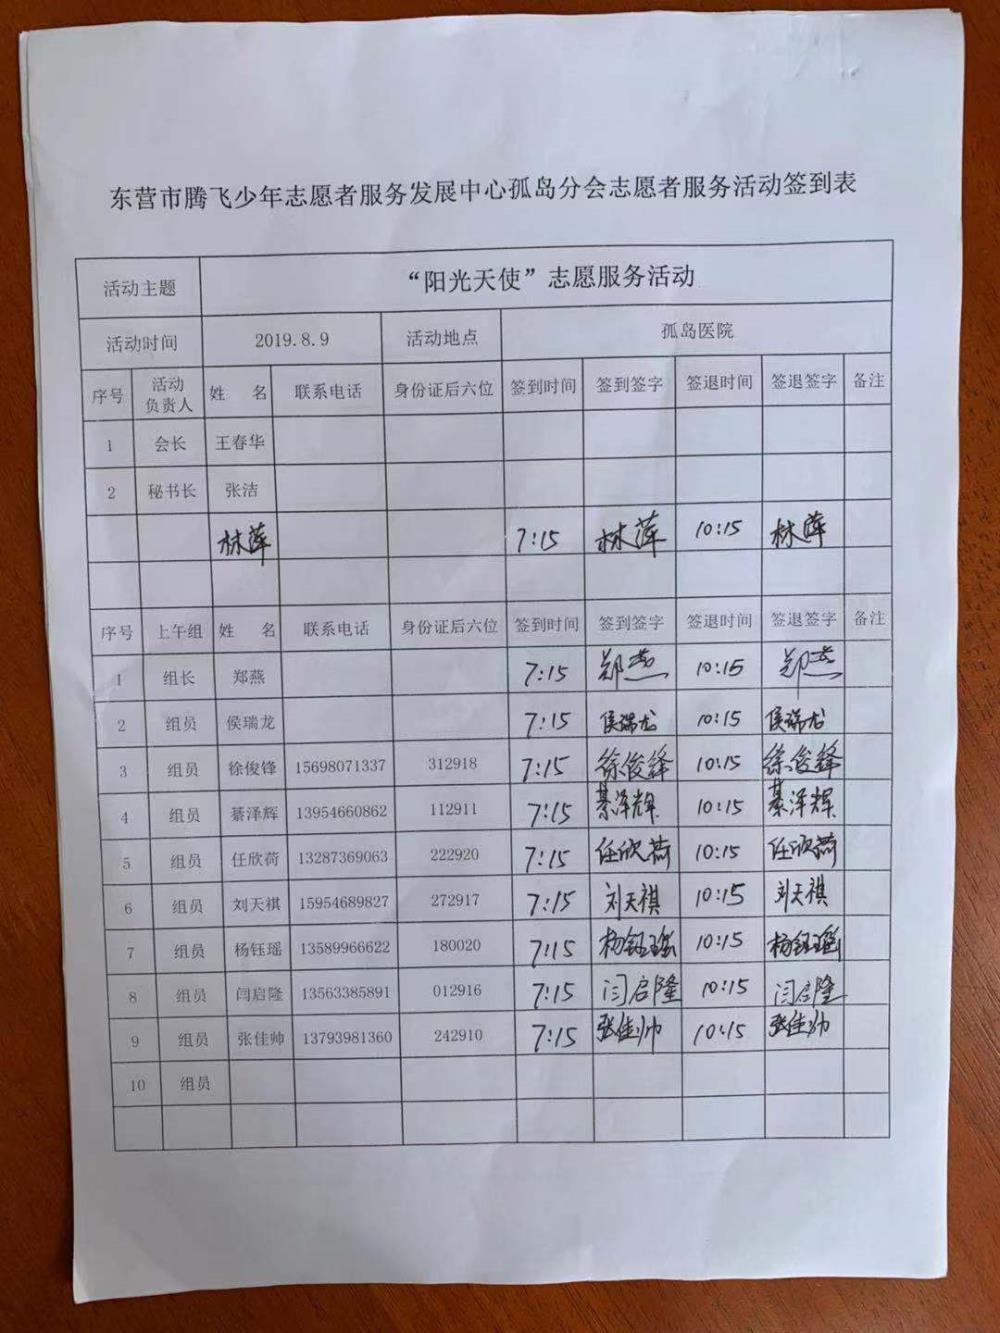 东营市腾飞少年志愿者服务发展中心孤岛分会志愿者服务活动签到表
活动主题 “阳光天使”志愿服务活动
活动时间 2019.8.9 活动地点 孤岛医院
序号 活动负责人 姓 名 联系电话 身份证后六位 签到时间 签到签字 签退时间 签退签字 备注
1 会长 王春华
2 秘书长 张洁
林萍 7:15 林萍 10:15 林萍
序号 上午组 姓 名 联系电话 身份证后六位 签到时间 签到签字 签退时间 签退签字 备注
1 组长 郑燕 7:15 郑燕 10:15 郑燕
2 组员 侯瑞龙 7:15 侯瑞龙 10:15 侯瑞龙
3 组员 徐俊锋 15698071337 312918 7:15 徐俊锋 10:15 徐俊锋
4 组员 綦泽辉 13954660862 112911 7:15 綦泽辉 10:15 綦泽辉
5 组员 任欣荷 13287369063 222920 7:15 任欣荷 10:15 任欣荷
6 组员 刘天祺 15954689827 272917 7:15 刘天祺 10:15 刘天祺
7 组员 杨钰瑶 13589966622 180020 7:15 杨钰瑶 10:15 杨钰瑶
8 组员 闫启隆 13563385891 012916 7:15 闫启隆 10:15 闫启隆
9 组员 张佳帅 13793981360 242910 7:15 张佳帅 10:15 张佳帅
10 组员